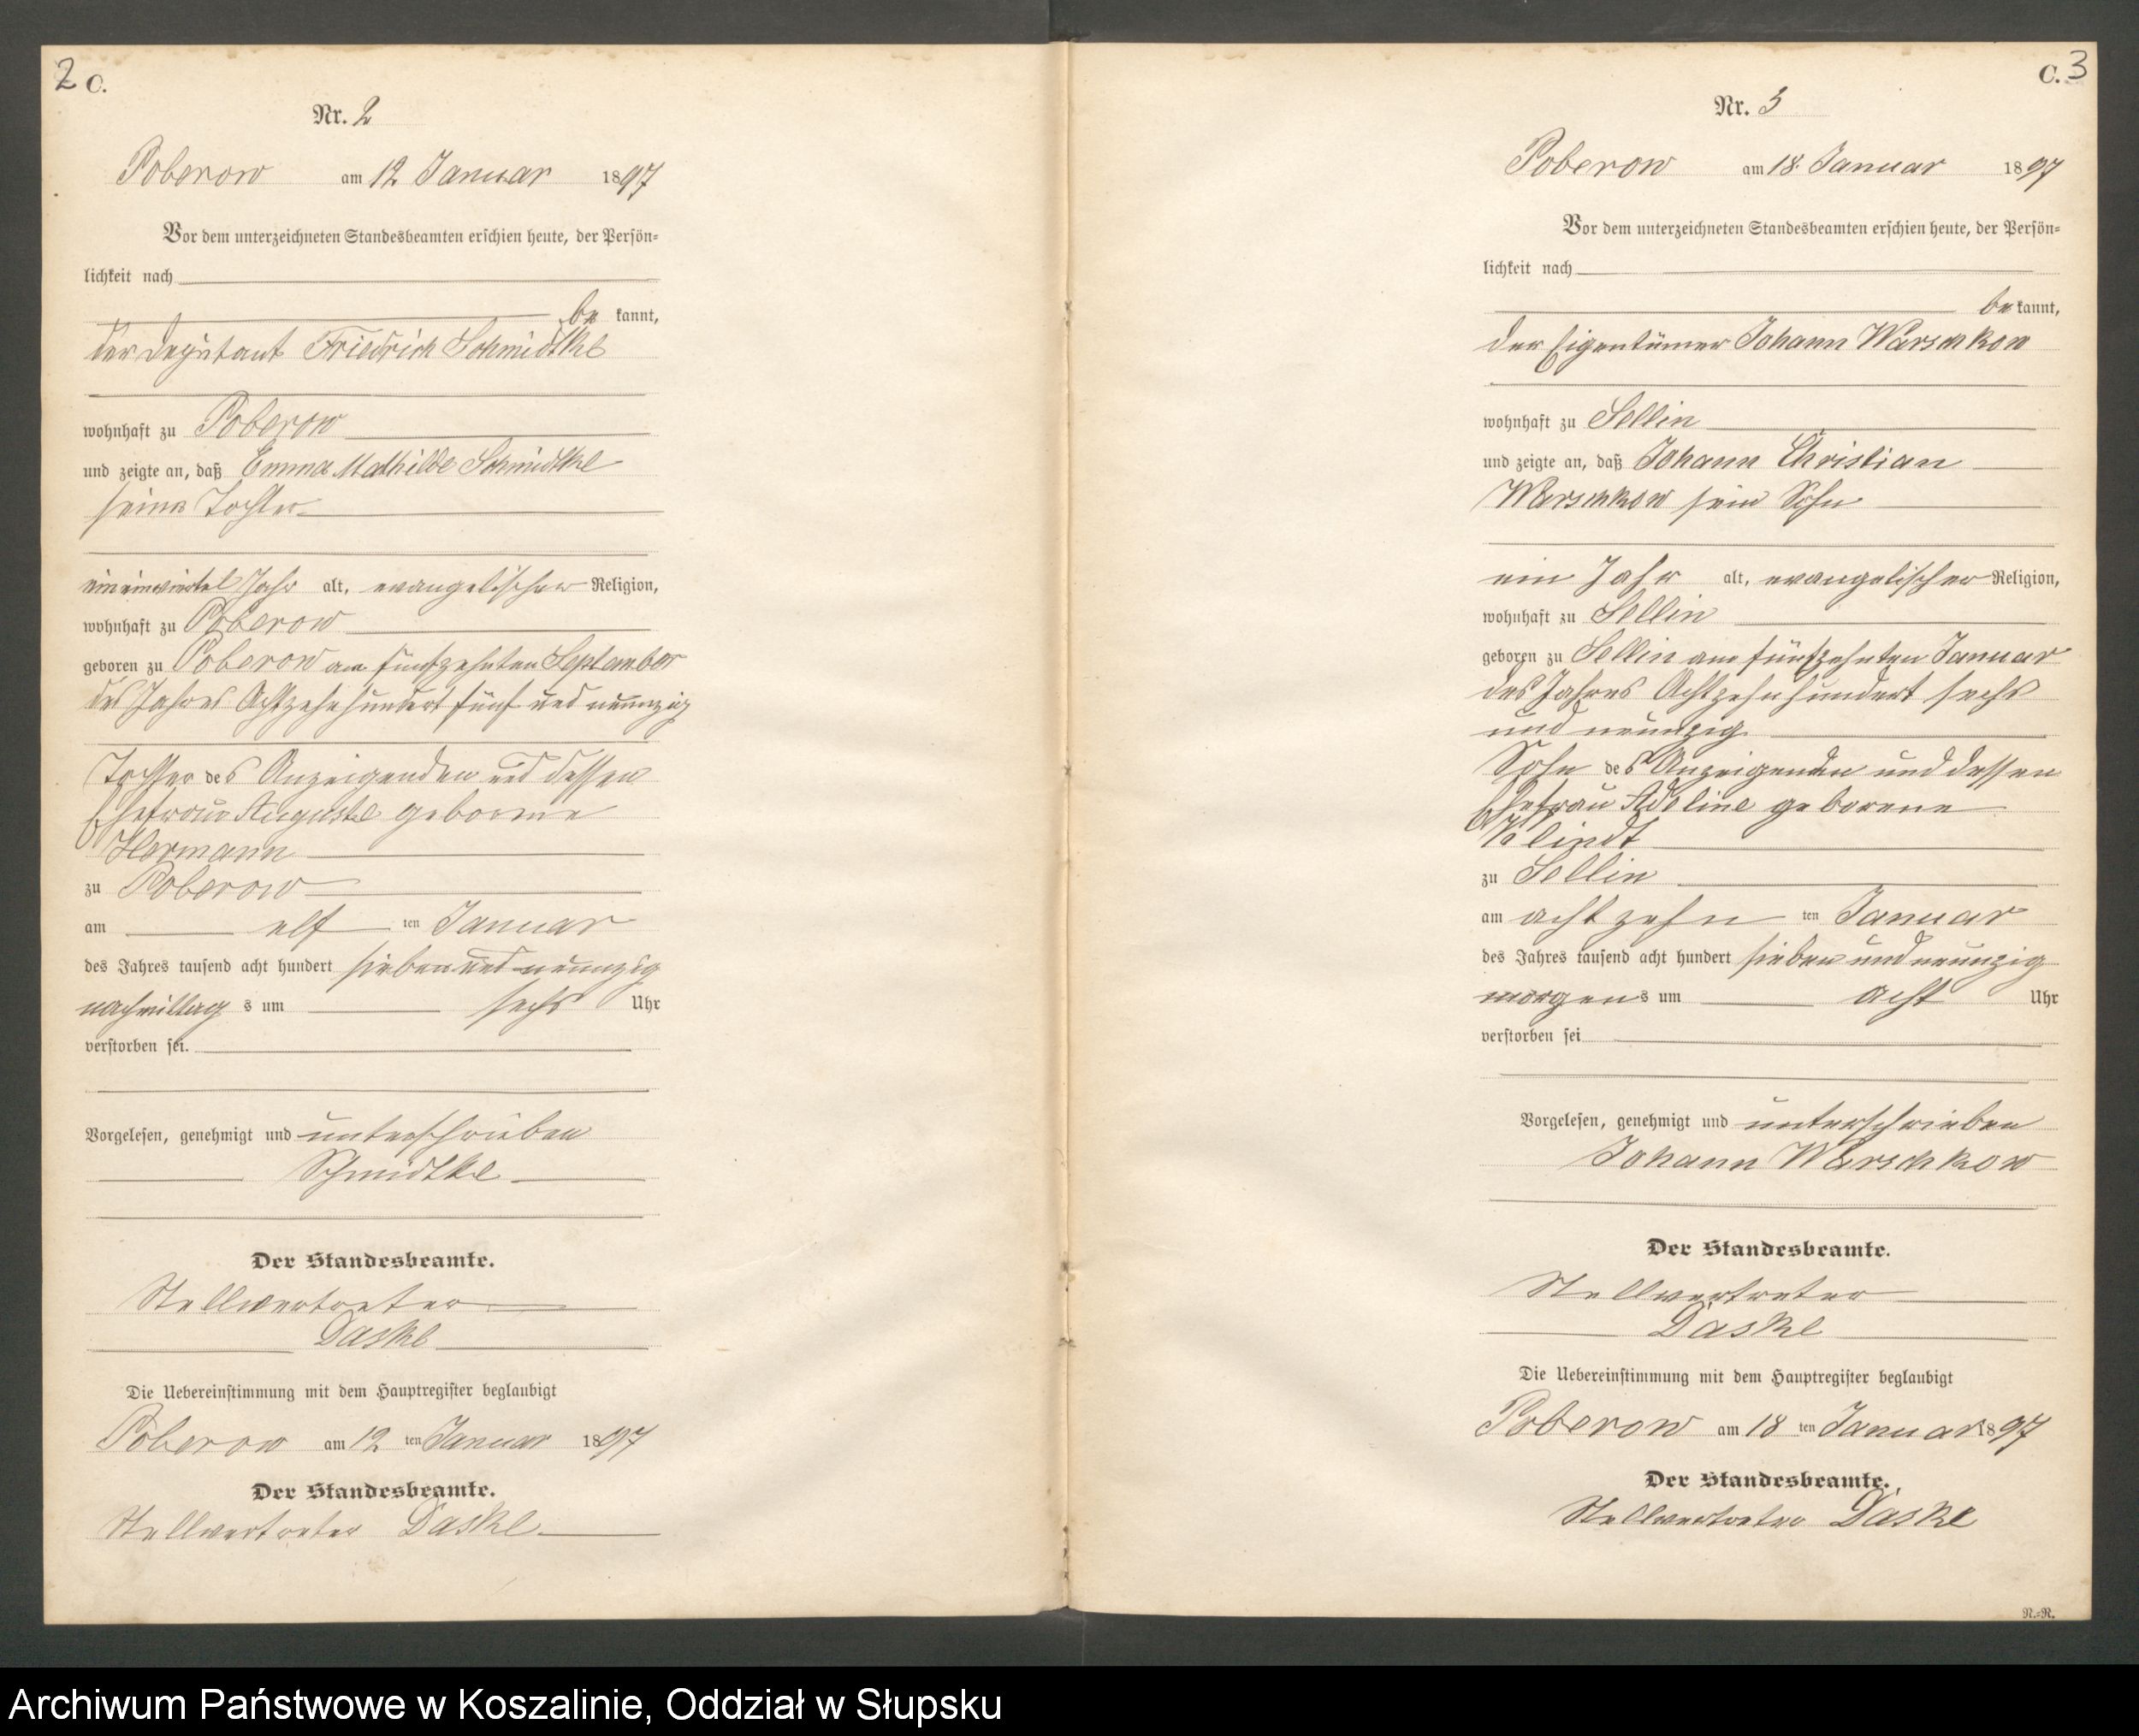 2 C.
Nr. 2
Poberow am 12 Januar 1897
Vor dem unterzeichneten Standesbeamten erschien heute, der Persön=
lichkeit nach
be kannt,
der Deputant Friedrich Schmidtke
wohnhaft zu Poberow
und zeigte an, daß Emma Mathilde Schmidtke
seine Tochter
ein einviertel Jahr alt, evangelischer Religion,
wohnhaft zu Poberow
geboren zu Poberow am fünfzehnten September
des Jahres Achtzehnhundert fünf und neunzig
Tochter des Anzeigenden und dessen
Ehefrau Auguste geborene
Hermann
zu Poberow
am elf ten Januar
des Jahres tausend acht hundert sieben und neunzig
nachmittag s um sechs Uhr
verstorben sei.
Vorgelesen, genehmigt und unterschrieben
Schmidtke
Der Standesbeamte.
Stellvertreter
Daske
Die Uebereinstimmung mit dem Hauptregister beglaubigt
Poberow am 12 ten Januar 1897
Der Standesbeamte.
Stellvertreter Daske
C. 3
Nr. 3
Poberow am 18. Januar 1897
Vor dem unterzeichneten Standesbeamten erschien heute, der Persön=
lichkeit nach
be kannt,
der Eigentümer Johann Warschkow
wohnhaft zu Sellin
und zeigte an, daß Johann Christian
Warschkow sein Sohn
ein Jahr alt, evangelischer Religion,
wohnhaft zu Sellin
geboren zu Sellin am fünfzehnten Januar
des Jahres Achtzehnhundert sechs
und neunzig
Sohn des Anzeigenden und dessen
Ehefrau Adeline geborene
Klindt
zu Sellin
am achtzehn ten Januar
des Jahres tausend acht hundert sieben und neunzig
morgens um acht Uhr
verstorben sei
Vorgelesen, genehmigt und unterschrieben
Johann Warschkow
Der Standesbeamte.
Stellvertreter
Daske
Die Uebereinstimmung mit dem Hauptregister beglaubigt
Poberow am 18 ten Januar 1897
Der Standesbeamte.
Stellvertreter Daske
N.=N.
Archiwum Państwowe w Koszalinie, Oddział w Słupsku